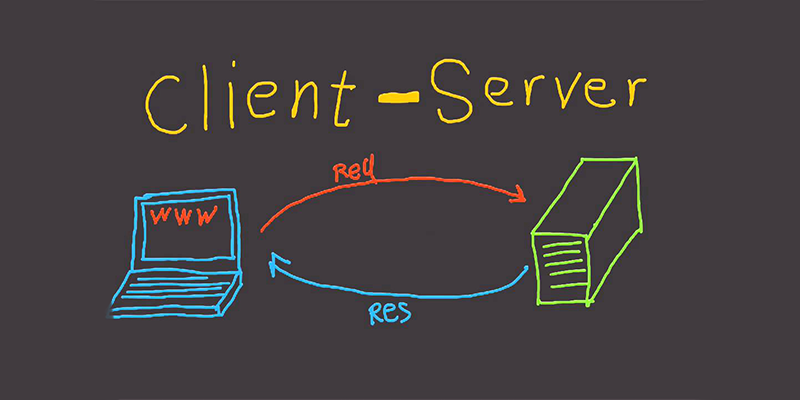 Client-Server
Req
WWW
Res